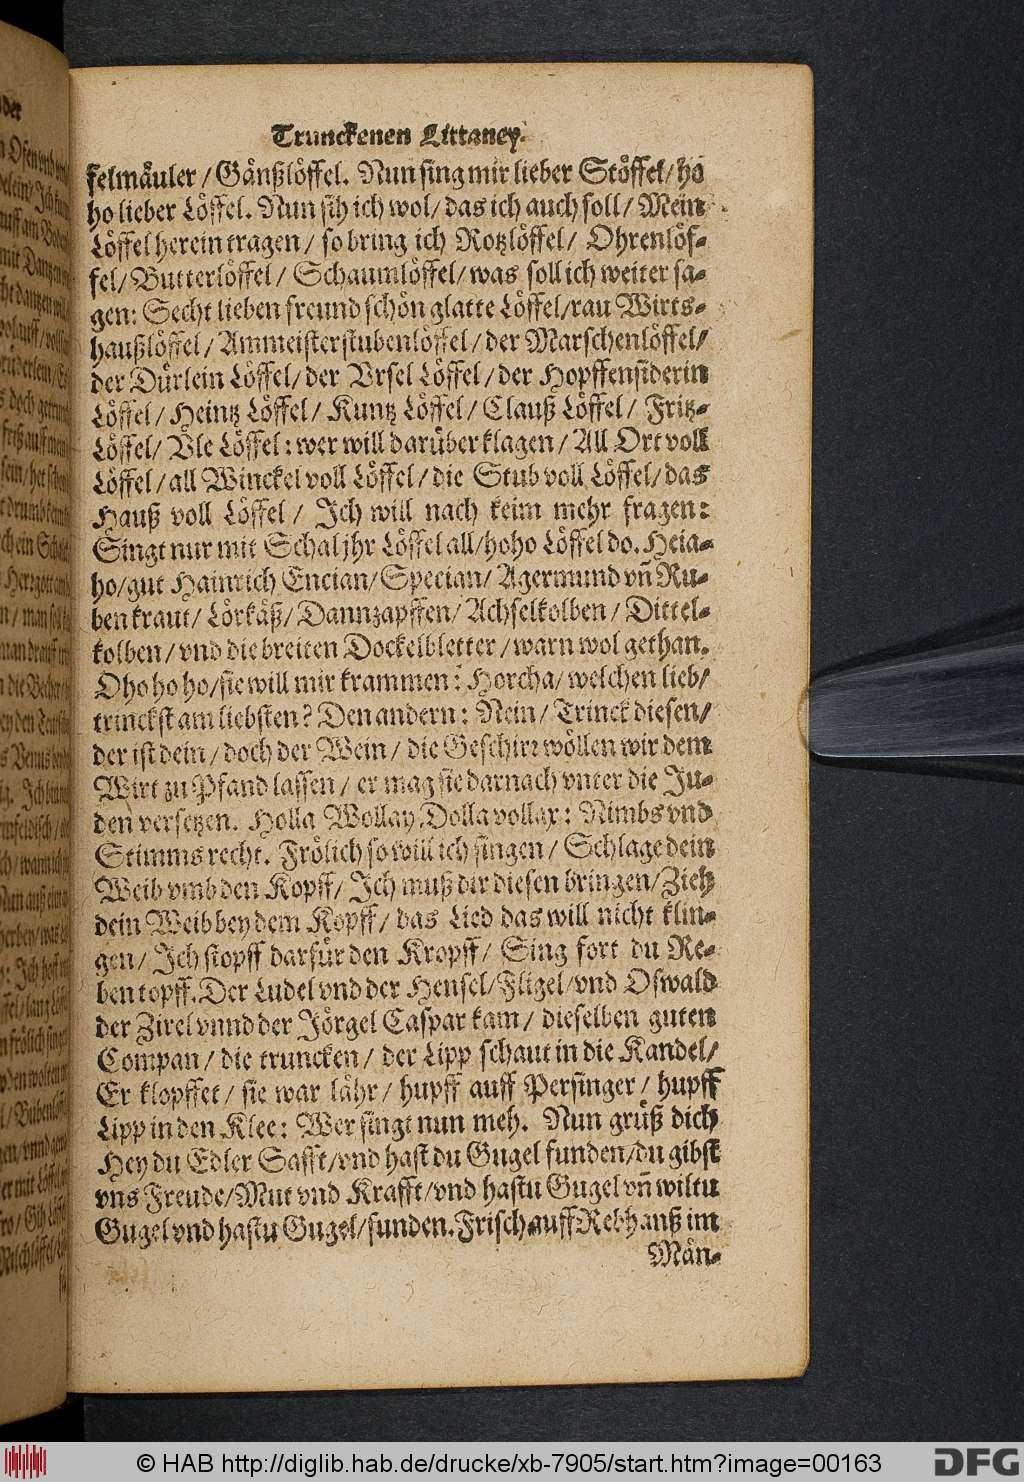 Trunckenen Littaney.
felmäuler / Gänßlöffel. Nun sing mir lieber Stöffel / ho
ho lieber Löffel. Nun sih ich wol / das ich auch soll / Mein
Löffel herein tragen / so bring ich Rotzlöffel / Ohrenlöf-
fel / Butterlöffel / Schaumlöffel / was soll ich weiter sa-
gen: Secht lieben freund schön glatte Löffel / rau Wirts-
haußlöffel / Ammeisterstubenlöffel / der Marschenlöffel /
der Dürlein Löffel / der Vrsel Löffel / der Hopffensiderin
Löffel / Heintz Löffel / Kuntz Löffel / Clauß Löffel / Fritz-
Löffel / Vle Löffel: wer will darüber klagen / All Ort voll
Löffel / all Winckel voll Löffel / die Stub voll Löffel / das
Hauß voll Löffel / Ich will nach keim mehr fragen:
Singt nur mit Schal jhr Löffel all / hoho Löffel do. Heia-
ho / gut Hainrich Encian / Specian / Agermund vñ Ru-
ben kraut / Lörkäß / Dannzapffen / Achselkolben / Dittel-
kolben / vnd die breiten Dockelbletter / warn wol gethan.
Oho ho ho / sie will mir krammen: Horcha / welchen lieb /
trinckst am liebsten? Den andern: Nein / Trinck diesen /
der ist dein / doch der Wein / die Geschirr wöllen wir dem
Wirt zu Pfand lassen / er mag sie darnach vnter die Ju-
den versetzen. Holla Wollay, Dolla vollax: Nimbs vnd
Stimms recht. Frölich so will ich singen / Schlage dein
Weib vmb den Kopff / Ich muß dir diesen bringen / Zieh
dein Weib bey dem Kopff / das Lied das will nicht klin-
gen / Ich stopff darfür den Kropff / Sing fort du Re-
bentopff. Der Ludel vnd der Hensel / Fligel / vnd Oswald
der Zirel vnnd der Jörgel Caspar kam / dieselben guten
Compan / die truncken / der Lipp schaut in die Kandel /
Er klopffet / sie war lähr / hupff auff Persinger / hupff
Lipp in den Klee: Wer singt nun meh. Nun grüß dich
Hey du Edler Safft / vnd hast du Gugel funden / du gibst
vns Freude / Mut vnd Krafft / vnd hastu Gugel vñ wiltu
Gugel vnd hastu Gugel / funden. Frisch auff Rebhanß im
Män-
© HAB http://diglib.hab.de/drucke/xb-7905/start.htm?image=00163
DFG